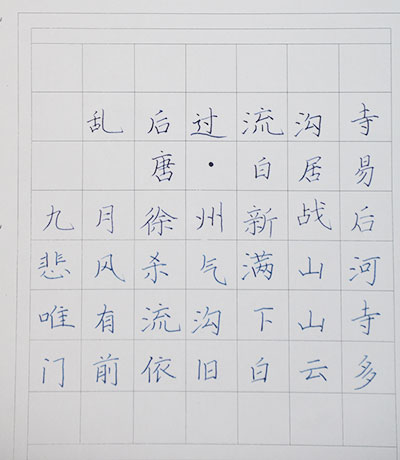 乱后过流沟寺
唐·白居易
九月徐州新战后
悲风杀气满山河
唯有流沟下山寺
门前依旧白云多